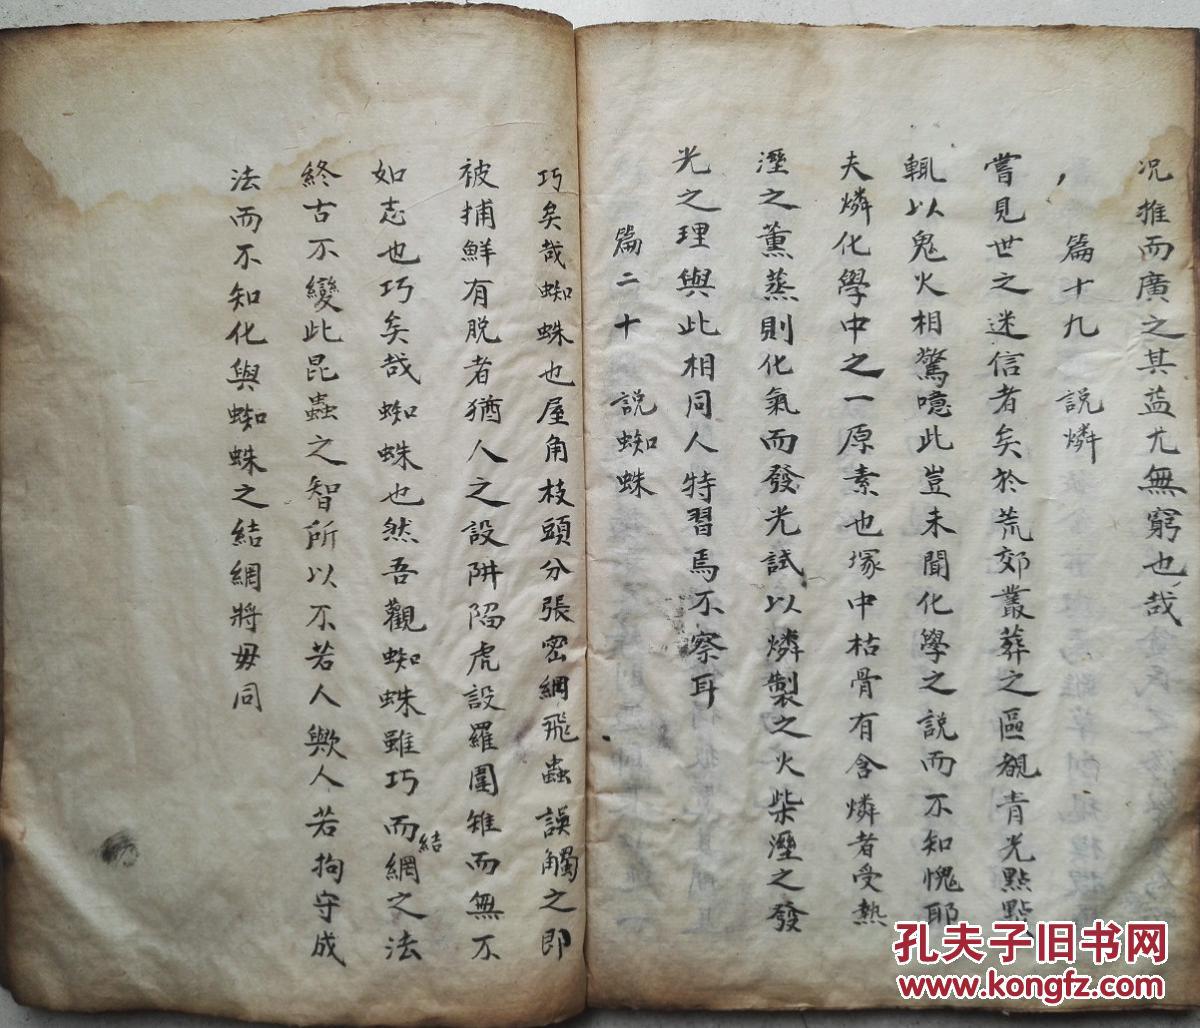 况推而廣之其益尤無窮也哉
篇十九 說燐
嘗見世之迷信者矣於荒郊叢葬之區覩青光點點
輒以鬼火相驚噫此豈未聞化學之說而不知愧耶
夫燐化學中之一原素也塚中枯骨有含燐者受熱
溼之薰蒸則化氣而發光試以燐製之火柴溼之發
光之理與此相同人特習焉不察耳
篇二十 說蜘蛛
巧矣哉蜘蛛也屋角枝頭分張密網飛蟲誤觸之即
被捕鮮有脱者猶人之設阱陷虎設羅圍雉而無不
如志也巧矣哉蜘蛛也然吾觀蜘蛛雖巧而結網之法
終古不變此昆蟲之智所以不若人歟人若拘守成
法而不知化與蜘蛛之結網將毋同
孔夫子旧书网
www.kongfz.com